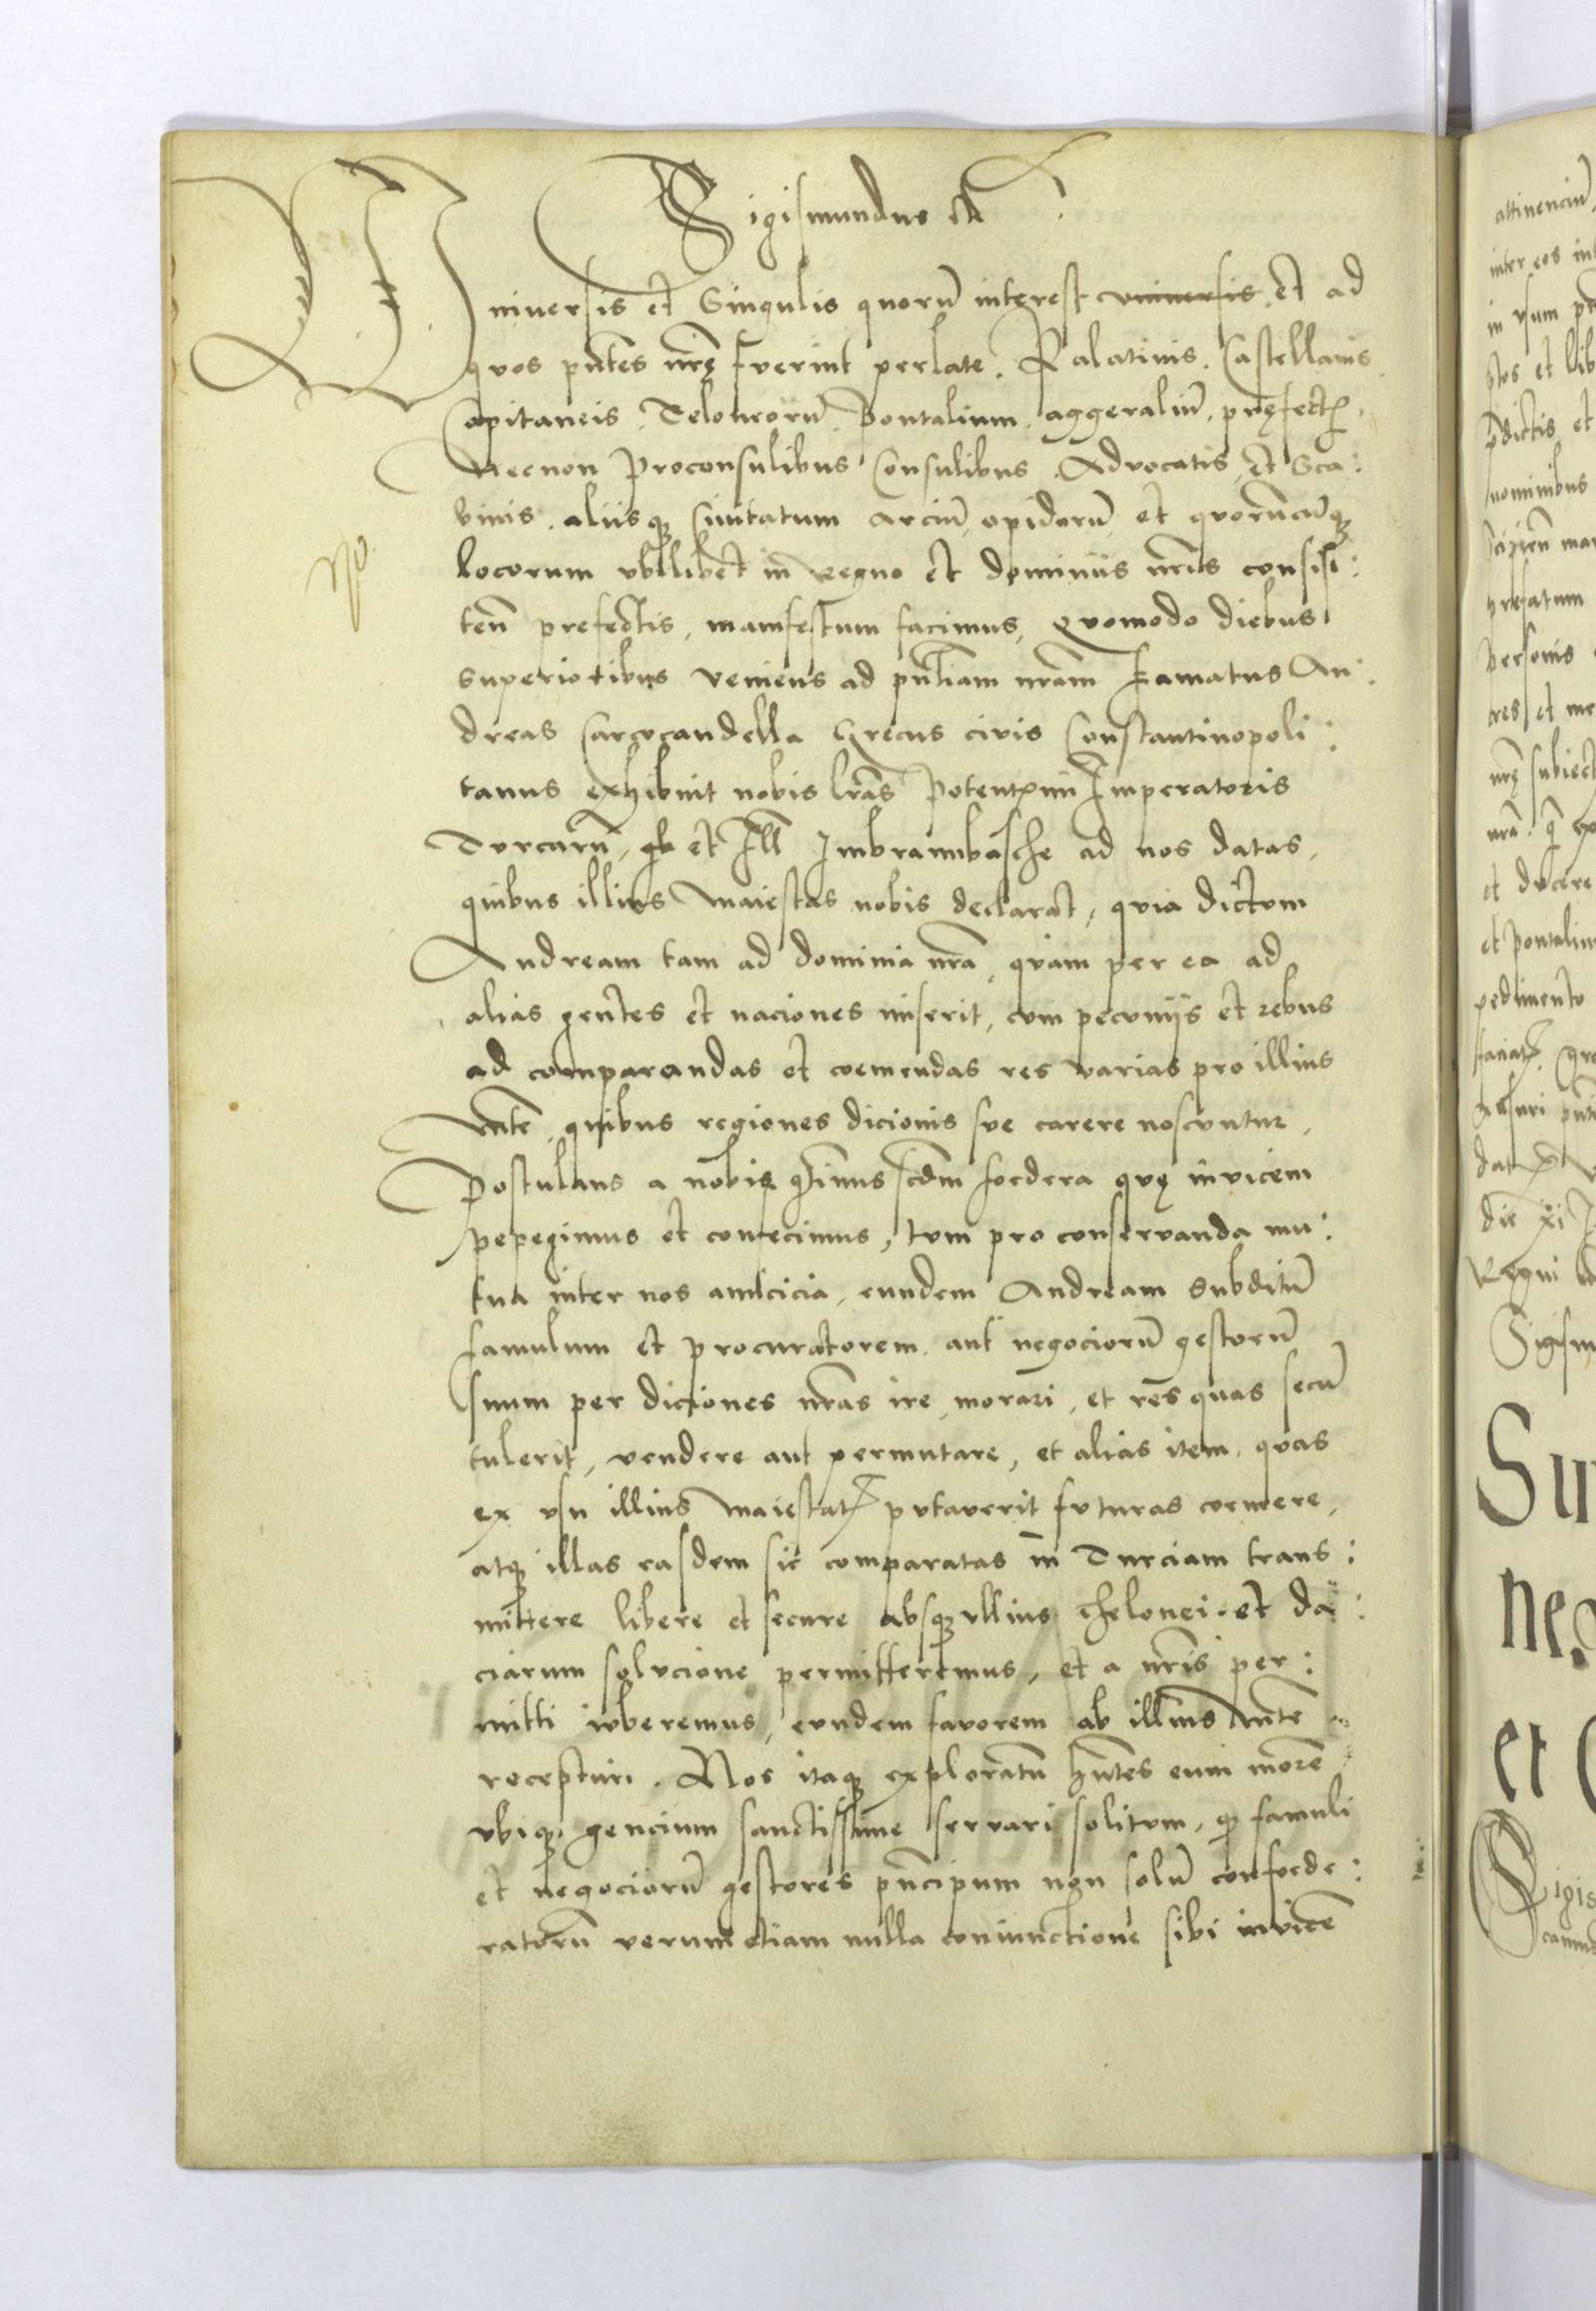 Sigismundus etc
Universis et Singulis quorũ interest universis et ad
quos pñtes nrę fuerint perlate. Palatinis. Castellanis
Capitaneis. Teloneorũ. Pontalium. aggeraliũ. pręfectꝭ.
Necnon Proconsulibus Consulibus. Advocatis, et Sca:
binis. aliisqꝫ Civitatum arciũ, opidorũ, et quorũcũqꝫ
No
locorum ubilibet in Regno et dominiis nr̃is consis:
teñ prefectis, manifestum facimus, quomodo diebus
superioribus veniens ad pñtiam nr̃am Famatus An:
dreas Carcocandella Grecus civis Constantinopoli:
tanus exhibuit nobis lr̃as Potentꝭmi Imperatoris
Turcarũ, et Ill̃ Imbraimbasche ad nos datas,
quibus illius Maiestas nobis declarat, quia dictum
Andream tam ad dominia nr̃a, quam per ea ad
alias gentes et naciones miserit, cum pecuniis et rebus
ad comparandas et coemendas res varias pro illius
Mte, quibus regiones dicionis sue carere noscuntur,
Postulans a nobis qͣtinus scdm foedera quę invicem
pepegimus et confecimus, tum pro conservanda mu:
tua inter nos amicicia, eundem Andream subditũ
famulum et procuratorem aut negociorũ gestorũ
suum per diciones nr̃as ire, morari, et res quas secũ
tulerit, vendere aut permutare, et alias item, quas
ex usu illius Maiestatꝭ putaverit futuras coemere,
atqꝫ illas easdem sic comparatas in Turciam trans:
mittere libere et secure absqꝫ ullius thelonei et da:
ciarum solucione permitteremus, et a nr̃is per:
mitti iuberemus, eundem favorem ab illius Mte
recepturi. Nos itaqꝫ exploratũ hñtes eum morẽ
ubiqꝫ gencium sanctissime servari solitum, qꝫ famuli
et negociorũ gestores pñcipum non solũ confoede:
ratorũ verum etiam nulla coniunctione sibi invicẽ
attinenciũ
inter eos
in usum
et lib
et
nominibus
prefatum
personis
res et me
nrę subiect
et ducere
et pontalium
pedimento
faciatꝭ
dat
die xi
Regni
Sigism
Su
neg
et
Sigis